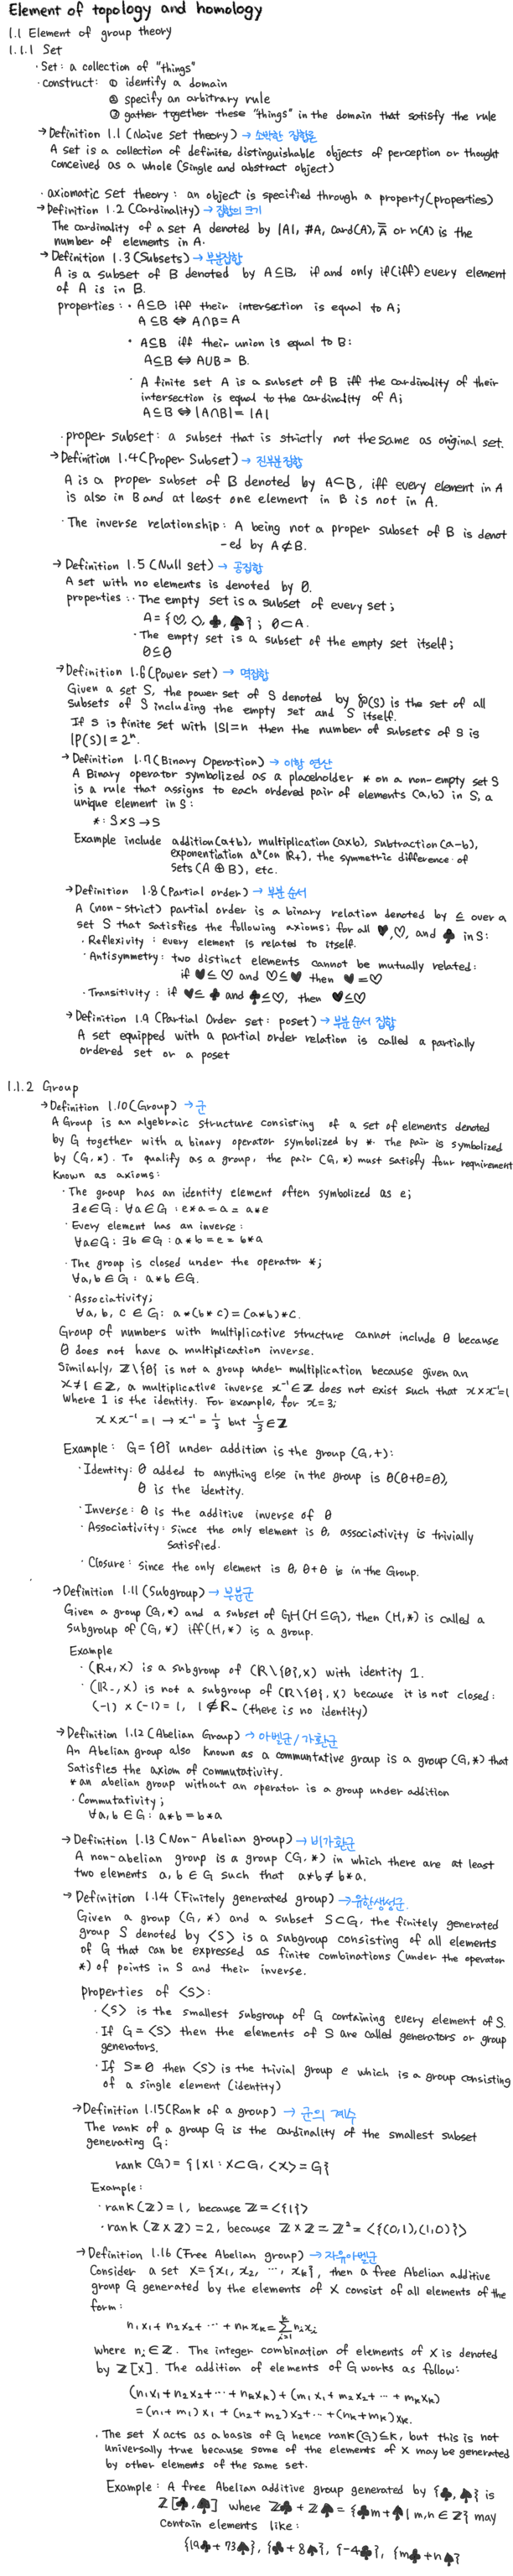 Element of topology and homology
1.1 Element of group theory
1.1.1 Set
· Set: a collection of "things"
· construct: ① identify a domain
② specify an arbitrary rule
③ gather together these "things" in the domain that satisfy the rule
→ Definition 1.1 (Naive set theory) → 소박한 집합론
A set is a collection of definite, distinguishable objects of perception or thought
conceived as a whole (single and abstract object)
· axiomatic set theory: an object is specified through a property(properties)
→ Definition 1.2 (Cardinality) → 집합의 크기
The cardinality of a set A denoted by |A|, #A, card(A), A̿ or n(A) is the
number of elements in A.
→ Definition 1.3 (Subsets) → 부분집합
A is a subset of B denoted by A⊆B, if and only if(iff) every element
of A is in B.
properties: · A⊆B iff their intersection is equal to A;
A⊆B ⇔ A∩B=A
· A⊆B iff their union is equal to B:
A⊆B ⇔ A∪B= B.
· A finite set A is a subset of B iff the cardinality of their
intersection is equal to the cardinality of A;
A⊆B ⇔ |A∩B|= |A|
· proper subset: a subset that is strictly not the same as original set.
→ Definition 1.4 (Proper Subset) → 진부분집합
A is a proper subset of B denoted by A⊂B, iff every element in A
is also in B and at least one element in B is not in A.
· The inverse relationship: A being not a proper subset of B is denot
-ed by A⊄B.
→ Definition 1.5 (Null set) → 공집합
A set with no elements is denoted by ∅.
properties: · The empty set is a subset of every set;
A={♡, ◇, ♣, ♠}; ∅⊂A.
· The empty set is a subset of the empty set itself;
∅⊆∅
→ Definition 1.6 (Power set) → 멱집합
Given a set S, the power set of S denoted by ℘(S) is the set of all
subsets of S including the empty set and S itself.
If S is finite set with |S|=n then the number of subsets of S is
|P(S)|= 2ⁿ.
→ Definition 1.7 (Binary Operation) → 이항 연산
A Binary operator symbolized as a placeholder * on a non-empty set S
is a rule that assigns to each ordered pair of elements (a,b) in S, a
unique element in S:
*: S×S→S
Example include addition(a+b), multiplication(a×b), subtraction(a-b),
exponentiation aᵇ(on R+), the symmetric difference of
sets (A ⊕ B), etc.
→ Definition 1.8 (Partial order) → 부분 순서
A (non-strict) partial order is a binary relation denoted by ≤ over a
set S that satisfies the following axioms; for all ♥,♡, and ♣ in S:
· Reflexivity: every element is related to itself.
· Antisymmetry: two distinct elements cannot be mutually related:
if ♥≤♡ and ♡≤♥ then ♥=♡
· Transitivity: if ♥≤ ♣ and ♣≤♡, then ♥≤♡
→ Definition 1.9 (Partial Order set: poset) → 부분 순서 집합
A set equipped with a partial order relation is called a partially
ordered set or a poset
1.1.2 Group
→ Definition 1.10 (Group) → 군
A Group is an algebraic structure consisting of a set of elements denoted
by G together with a binary operator symbolized by *. The pair is symbolized
by (G,*). To qualify as a group, the pair (G,*) must satisfy four requirement
known as axioms:
· The group has an identity element often symbolized as e;
∃e∈G: ∀a∈G : e*a=a = a*e
· Every element has an inverse:
∀a∈G: ∃b∈G : a*b=e= b*a
· The group is closed under the operator *;
∀a,b∈G: a*b∈G.
· Associativity;
∀a, b, c ∈G: a*(b*c)=(a*b)*c.
Group of numbers with multiplicative structure cannot include 0 because
0 does not have a multiplication inverse.
Similarly, Z\{0} is not a group under multiplication because given an
x≠1∈Z, a multiplicative inverse x⁻¹∈Z does not exist such that x×x⁻¹=1
where 1 is the identity. For example, for x=3;
x×x⁻¹=1 → x⁻¹= 1/3 but 1/3∈Z
Example: G={0} under addition is the group (G,+):
· Identity: 0 added to anything else in the group is 0(0+0=0),
0 is the identity.
· Inverse: 0 is the additive inverse of 0
· Associativity: Since the only element is 0, associativity is trivially
satisfied.
· Closure: since the only element is 0, 0+0 is in the Group.
→ Definition 1.11 (Subgroup) → 부분군
Given a group (G,*) and a subset of G,H(H⊆G), then (H,*) is called a
subgroup of (G,*) iff(H,*) is a group.
Example
· (R+,×) is a subgroup of (R\{0},×) with identity 1.
· (R-,×) is not a subgroup of (R\{0},×) because it is not closed:
(-1)×(-1)=1, 1∉R- (there is no identity)
→ Definition 1.12 (Abelian Group) → 아벨군/가환군
An Abelian group also known as a communtative group is a group (G,*) that
satisfies the axiom of commutativity.
* an abelian group without an operator is a group under addition
· Commutativity;
∀a,b∈G: a*b=b*a
→ Definition 1.13 (Non-Abelian group) → 비가환군
A non-abelian group is a group (G,*) in which there are at least
two elements a, b∈G such that a*b≠b*a.
→ Definition 1.14 (Finitely generated group) → 유한생성군.
Given a group (G,*) and a subset S⊂G, the finitely generated
group S denoted by <S> is a subgroup consisting of all elements
of G that can be expressed as finite combinations (under the operator
*) of points in S and their inverse.
properties of <S>:
· <S> is the smallest subgroup of G containing every element of S.
· If G=<S> then the elements of S are called generators or group
generators.
· If S=∅ then <S> is the trivial group e which is a group consisting
of a single element (identity)
→ Definition 1.15 (Rank of a group) → 군의 계수
The rank of a group G is the cardinality of the smallest subset
generating G:
rank (G)={|X|: X⊂G, <X>=G}
Example:
· rank(Z)=1, because Z=<{1}>
· rank (Z×Z)=2, because Z×Z=Z²=<{(0,1),(1,0)}>
→ Definition 1.16 (Free Abelian group) → 자유아벨군
Consider a set X={x₁, x₂, ···, xₖ}, then a free Abelian additive
group G generated by the elements of X consist of all elements of the
form:
n₁x₁+n₂x₂+···+nₖxₖ=∑ᵏᵢ₌₁nᵢxᵢ
where nᵢ∈Z. The integer combination of elements of X is denoted
by Z[X]. The addition of elements of G works as follow:
(n₁x₁+n₂x₂+···+nₖxₖ)+(m₁x₁+m₂x₂+···+mₖxₖ)
=(n₁+m₁)x₁+(n₂+m₂)x₂+···+(nₖ+mₖ)xₖ.
· The set X acts as a basis of G hence rank(G)≤k, but this is not
universally true because some of the elements of X may be generated
by other elements of the same set.
Example: A free Abelian additive group generated by {♣,♠} is
Z[♣,♠] where Z♣+Z♠={♣m+♠n|m,n∈Z} may
contain elements like:
{19♣+73♠}, {♣+8♠}, {-4♣}, {m♣+n♠}